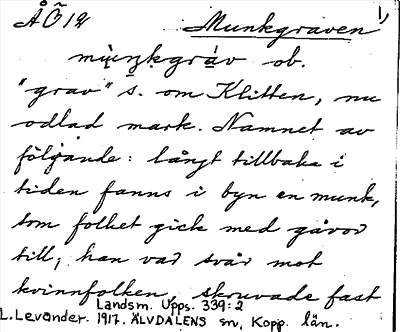 ÅÖ12 Munkgraven 1)
mùŋkgràv ob.
"grav" s. om Klitten, nu
odlad mark. Namnet av
följande: långt tillbaka i
tiden fanns i byn en munk,
som folket gick med gåvor
till; han var svår mot
kvinnfolken, skruvade fast
Landsm. Upps. 339:2
L. Levander. 1917. ÄLVDALENS sn, Kopp. län.